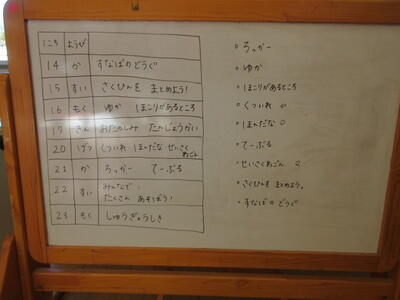 ころ ようび
14 か すなばのどうぐ
15 すい さくひんを まとめよう!
16 もく ゆか ほこりがあるところ
17 きん おたのしみ たんじょうかい
20 げつ くついれ ほんだな せいさく
わごん
21 か ろっかー てーぶる
22 すい みんなで
たくさん あそぼう!
23 もく しゅうぎょうしき
ろっかー
ゆか
ほこりがあるところ
くついれ
ほんだな
てーぶる
せいさくわごん
さくひんを まとめよう。
すなばの どうぐ